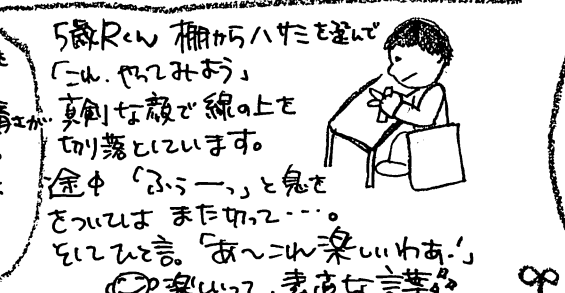 5歳Rくん 棚からハサミを選んで
「これ、やってみよう」
真剣な顔で線の上を
切り落としています。
途中「ふぅーっ」と息を
をついては また切って・・・。
そしてひと言。「あ〜これ楽しいわぁ!」
楽しいって、素直な言葉